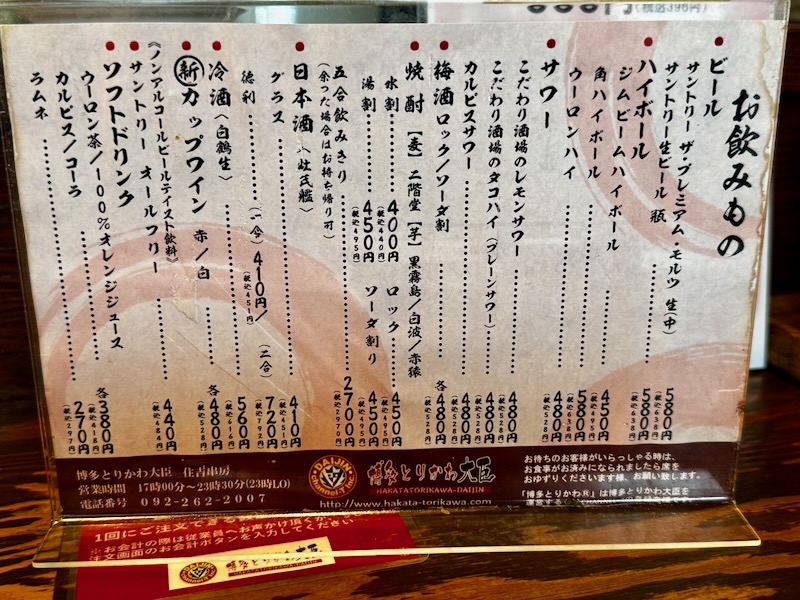 お飲みもの
ビール
サントリー ザ・プレミアム・モルツ 生(中) 580円(税込638円)
サントリー生ビール 瓶 580円(税込638円)
ハイボール
ジムビームハイボール 450円
角ハイボール 580円(税込638円)
ウーロンハイ 480円(税込528円)
サワー
こだわり酒場のレモンサワー 480円(税込528円)
こだわり酒場のタコハイ(プレーンサワー) 480円(税込528円)
カルピスサワー 480円(税込528円)
梅酒 ロック/ソーダ割 各480円(税込528円)
焼酎【麦】二階堂【芋】黒霧島/白波/赤猿
水割 400円(税込440円) ロック 450円(税込495円)
湯割 450円(税込495円) ソーダ割り 450円(税込495円)
五合飲みきり 2700円(税込2970円)
(余った場合はお持ち帰り可)
日本酒
グラス 410円(税込451円)
徳利 (一合)410円(税込451円)/(二合)720円(税込792円)
冷酒〈白鶴生〉 560円(税込616円)
新 カップワイン 赤/白 各480円(税込528円)
《ノンアルコールビールテイスト飲料》
サントリー オールフリー 440円(税込484円)
ソフトドリンク
ウーロン茶/100%オレンジジュース
カルピス/コーラ 各380円(税込418円)
ラムネ 270円(税込297円)
博多とりかわ大臣 住吉串房
営業時間 17時00分〜23時30分(23時LO)
電話番号 092-262-2007
DAIJIN
博多とりかわ大臣
HAKATATORIKAWA-DAIJIN
http://www.hakata-torikawa.com
お待ちのお客様がいらっしゃる時は、
お食事がお済みになられましたら席を
おゆずりくださいます様、お願い致します。
「博多とりかわ®」は博多とりかわ大臣を
1回にご注文できる
※お会計の際は従業員へお声かけ頂くか
注文画面のお会計ボタンを入力してください
博多とりかわ大臣
HAKATATORIKAWA-DAIJIN